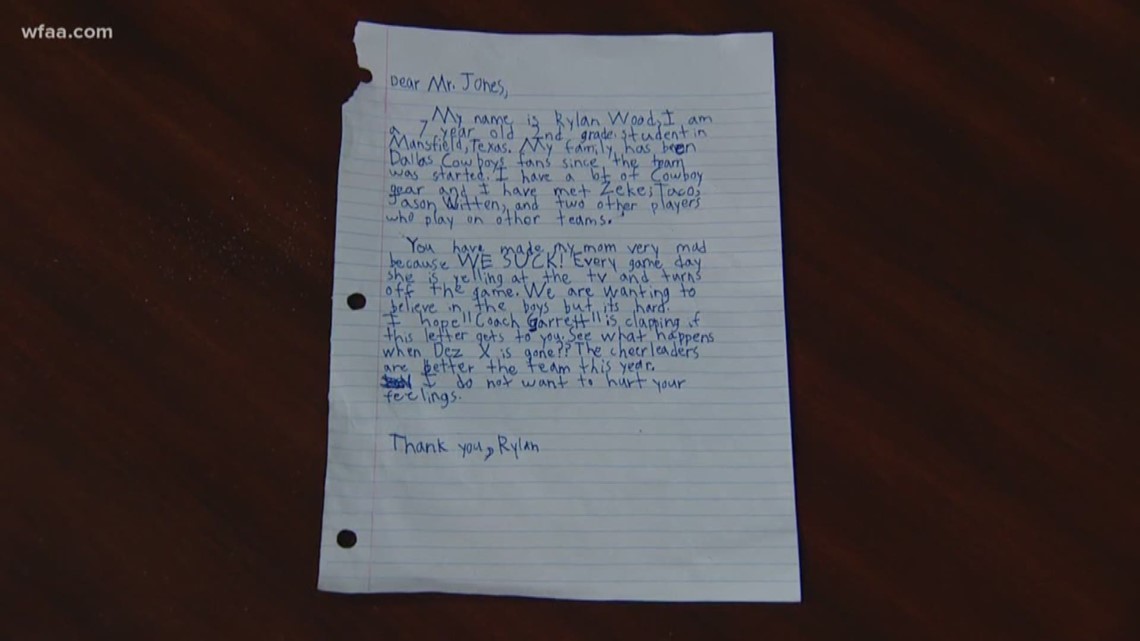 wfaa.com
Dear Mr. Jones,
My name is Rylan Wood. I am
a 7 year old 2nd grade student in
Mansfield, Texas. My family has been
Dallas Cowboys fans since the team
was started. I have a lot of Cowboy
gear and I have met Zeke, Taco,
Jason Witten, and two other players
who play on other teams.
You have made my mom very mad
because WE SUCK! Every game day
she is yelling at the tv and turns
off the game. We are wanting to
believe in the boys but its hard.
I hope "Coach Garrett" is clapping if
this letter gets to you. See what happens
when Dez X is gone?? The cheerleaders
are better the team this year.
I do not want to hurt your
feelings.
Thank you, Rylan